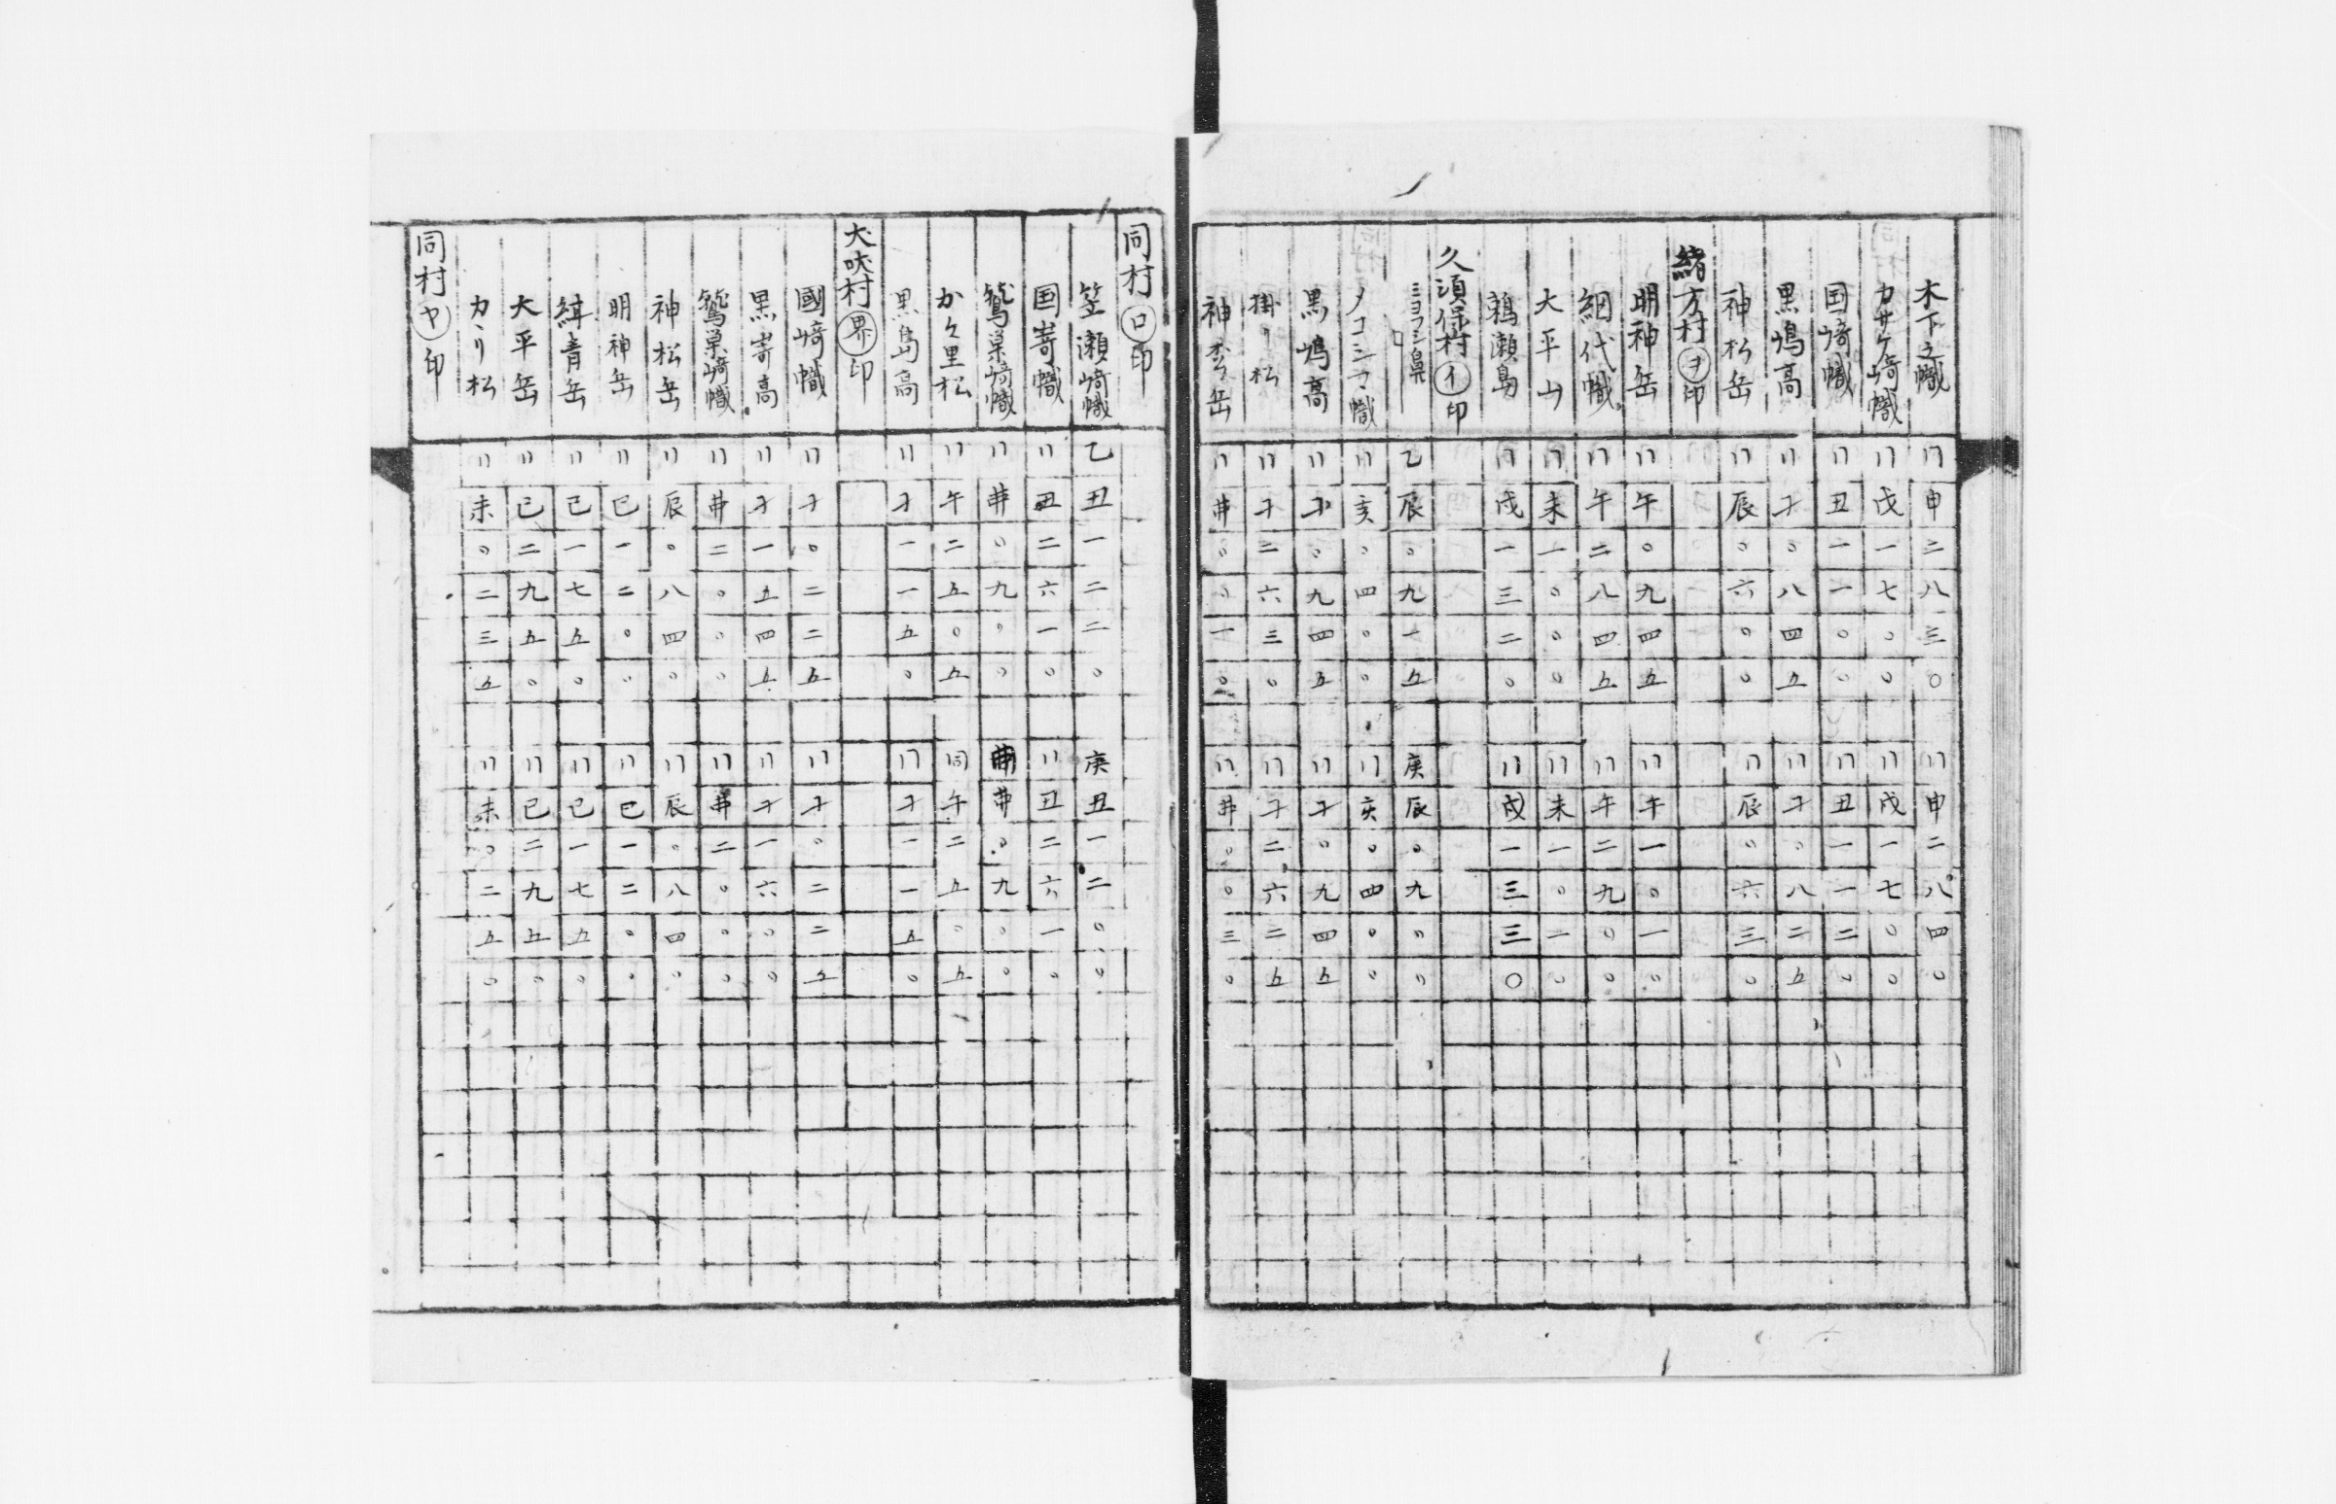 木下之幟 〃 申 二 八 三 〇 〃 申 二 八 四 〇
カサケ﨑幟 〃 戌 一 七 〇 〇 〃 戌 一 七 〇 〇
国﨑幟 〃 丑 一 一 〇 〇 〃 丑 一 一 二 〇
黒嶋高 〃 子 〇 八 四 五 〃 子 〇 八 二 五
神松岳 〃 辰 〇 六 〇 〇 〃 辰 〇 六 三 〇
緒方村㋾印
明神岳 〃 午 〇 九 四 五 〃 午 一 〇 一 〇
網代幟 〃 午 二 八 四 五 〃 午 二 九 〇 〇
大平山 〃 未 一 〇 〇 〇 〃 未 一 〇 一 〇
鵜瀬島 〃 戌 一 三 二 〇 〃 戌 一 三 三 〇
久須保村㋑印
鼻 乙 辰 〇 九 一 五 庚 辰 〇 九 〇 〇
幟 〃 亥 〇 四 〇 〇 〃 亥 〇 四 〇 〇
黒嶋高 〃 子 〇 九 四 五 〃 子 〇 九 四 五
掛り松 〃 子 二 六 三 〇 〃 子 二 六 二 五
神松岳 〃 丼 〇 〇 一 〇 〃 丼 〇 〇 三 〇
同村㋺印
笠瀬﨑幟 乙 丑 一 二 二 〇 庚 丑 一 二 〇 〇
国嵜幟 〃 丑 二 六 一 〇 〃 丑 二 六 一 〇
鷲巣﨑幟 〃 丼 〇 九 〇 〇 丼 〇 九 〇 〇
かゝ里松 〃 午 二 五 〇 五 同 午 二 五 〇 五
黒島高 〃 子 一 一 五 〇 〃 子 一 一 五 〇
犬吠村界印
國﨑幟 〃 子 〇 二 二 五 〃 子 〇 二 二 五
黒嵜高 〃 子 一 五 四 五 〃 子 一 六 〇 〇
鷲巣﨑幟 〃 丼 二 〇 〇 〇 〃 丼 二 〇 〇 〇
神松岳 〃 辰 〇 八 四 〇 〃 辰 〇 八 四 〇
明神岳 〃 巳 一 二 〇 〇 〃 巳 一 二 〇 〇
緒青岳 〃 巳 一 七 五 〇 〃 巳 一 七 五 〇
大平岳 〃 巳 二 九 五 〇 〃 巳 二 九 五 〇
カヽり松 〃 未 〇 二 三 五 〃 未 〇 二 五 〇
同村㋳印